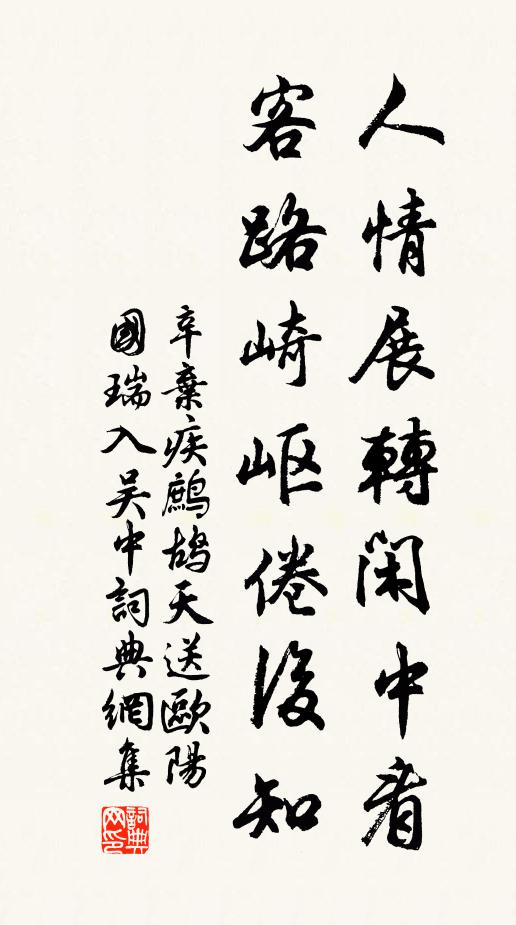 人情展轉閑中看
客路崎岖倦後知
辛棄疾鷓鴣天送歐陽
國瑞入吴中詞典網集
詞典
网印